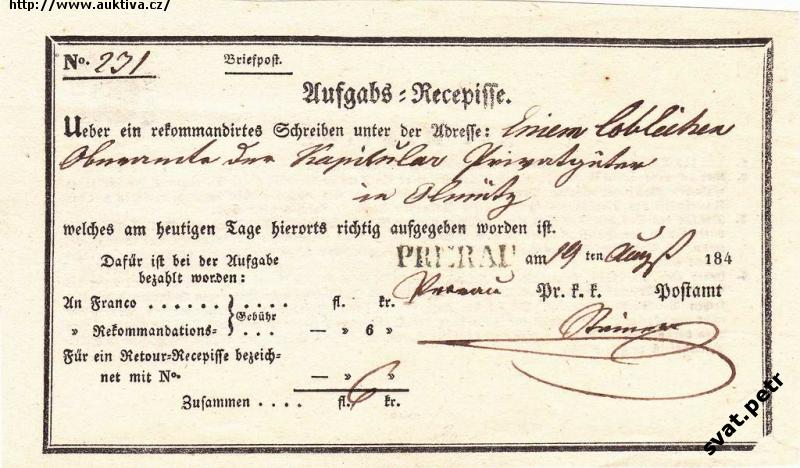 http://www.auktiva.cz/
No. 231
Briefpost.
Aufgabs-Recepisse.
Ueber ein rekommandirtes Schreiben unter der Adresse: Einem löblichen
Oberamte der Kapitular Privatgüter
in Olmütz
welches am heutigen Tage hierorts richtig aufgegeben worden ist.
Dafür ist bei der Aufgabe
bezahlt worden:
PRERAU am 19 ten Augst 184
Prerau Pr. k. k. Postamt
An Franco . . . . . . . . . . fl. kr.
Gebühr
» Rekommandations- . . . — » 6 »
Für ein Retour-Recepisse bezeich-
net mit No. — » »
Zusammen . . . . fl. 6 kr.
svat.petr